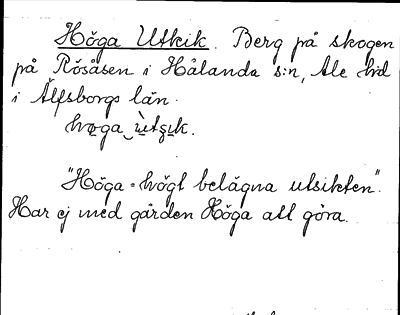 Höga Utkik. Berg på skogen
på Rösåsen i Hålanda s:n, Ale hd
i Älfsborgs län.
"Höga = högt belägna utsikten".
Har ej med gården Höga att göra.